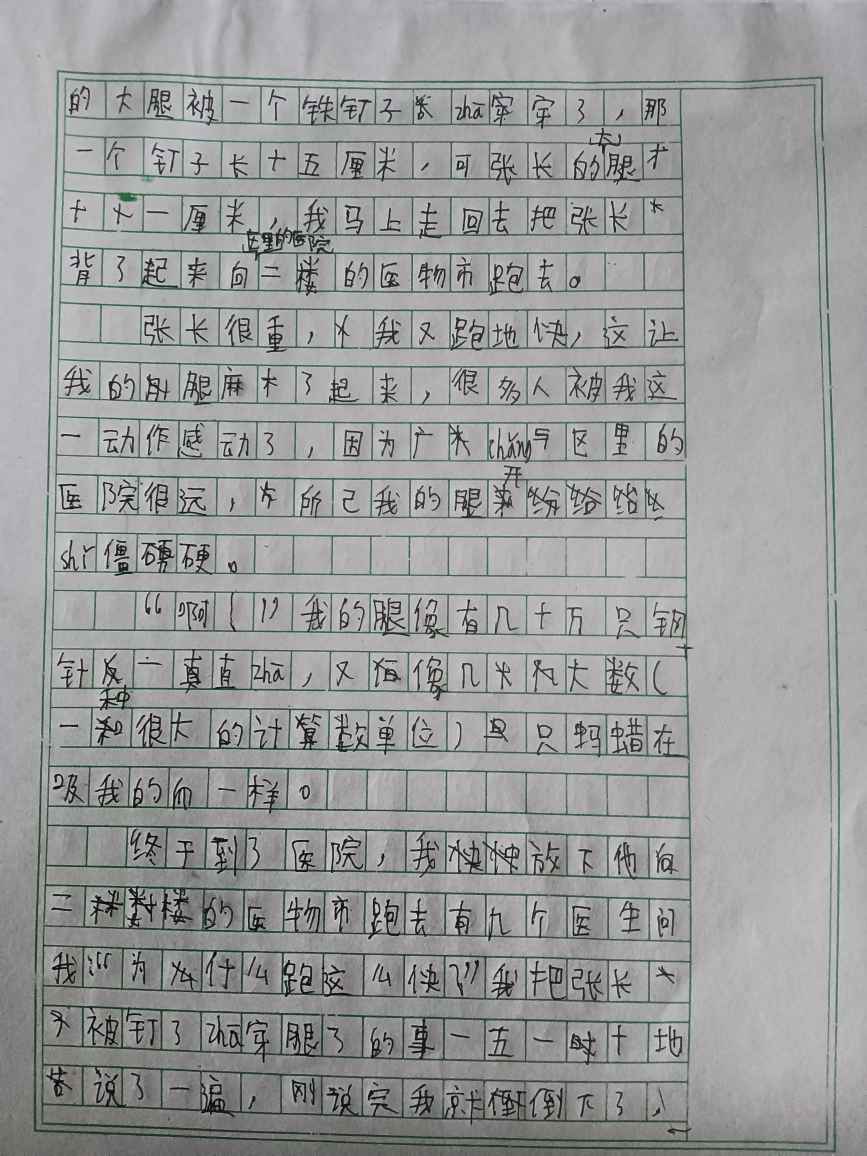 的大腿被一个铁钉子zhā穿了，那
一个钉子长十五厘米，可张长的大腿才
十一厘米，我马上走回去把张长
背了起来向区里的医院二楼的医物市跑去。
张长很重，我又跑地快，这让
我的腿麻木了起来，很多人被我这
一动作感动了，因为广chǎng与区里的
医院很远，所已我的腿开始
shǐ僵硬。
“啊！”我的腿像有几十万只钢
针一直zhā，又像几大数（
一种很大的计算数单位）只蚂蜡在
吸我的血一样。
终于到了医院，我快放下他向
二楼的医物市跑去有几个医生问
我：“为什么跑这么快？”我把张长
被钉子zhā穿腿了的事一五一十地
说了一遍，刚说完我就倒下了，